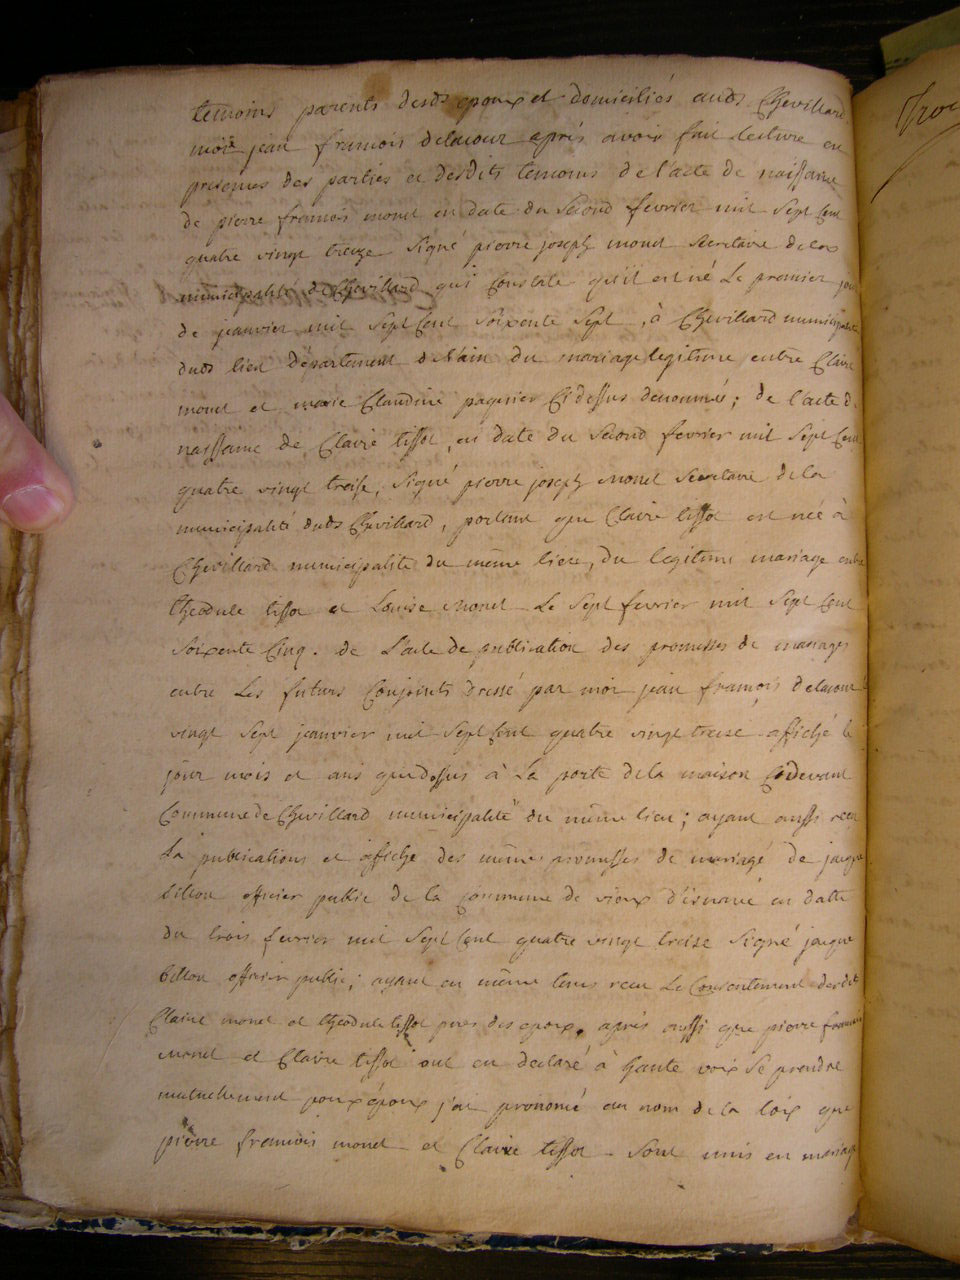 temoins parents desds epoux et domiciliés auds Chevillard
moi jean francois delacour aprés avoir fait lecture en
presences des parties et desdits temoins de l'acte de naissance
de pierre francois monet en date du second fevrier mil sept cent
quatre vingt treize signé pierre joseph monet secretaire de la
municipalité de Chevillard qui constate qu'il est né le premier jour
de janvier mil sept cent soixente sept, à Chevillard municipalité
duds lieu département de l'ain du mariage legitime entre Claire
monet et marie Claudine pagnier cidessus denommé; de l'acte de
naissance de Claire tissot, en date du second fevrier mil sept cent
quatre vingt treise, signé pierre joseph monet secretaire de la
municipalité duds Chevillard, portant que Claire tissot est née à
Chevillard municipalité du même lieu, du legitime mariage entre
theodule tissot et Louise monet le sept fevrier mil sept cent
soixente cinq. de l'acte de publication des promesses de mariages
entre les futurs conjoints dressé par moi jean francois delacour
vingt sept janvier mil sept cent quatre vingt treise affiché le
jour mois et ans que dessus à la porte de la maison cidevant
commune de Chevillard municipalité du même lieu; ayant aussi recu
la publications et affiche des mêmes promesses de mariage de jacque
billon officier public de la commune de vieux d'isenave en datte
du trois fevrier mil sept cent quatre vingt treise signé jacque
billon officier public; ayant en même tems recu le consentement desdit
Claire monet et theodule tissot peres des epoux. aprés aussi que pierre francois
monet et Claire tissot ont eu declaré à haute voix se prendre
mutuellement pour époux j'ai prononcé au nom de la loix que
pierre francois monet et Claire tissot sont unis en mariage